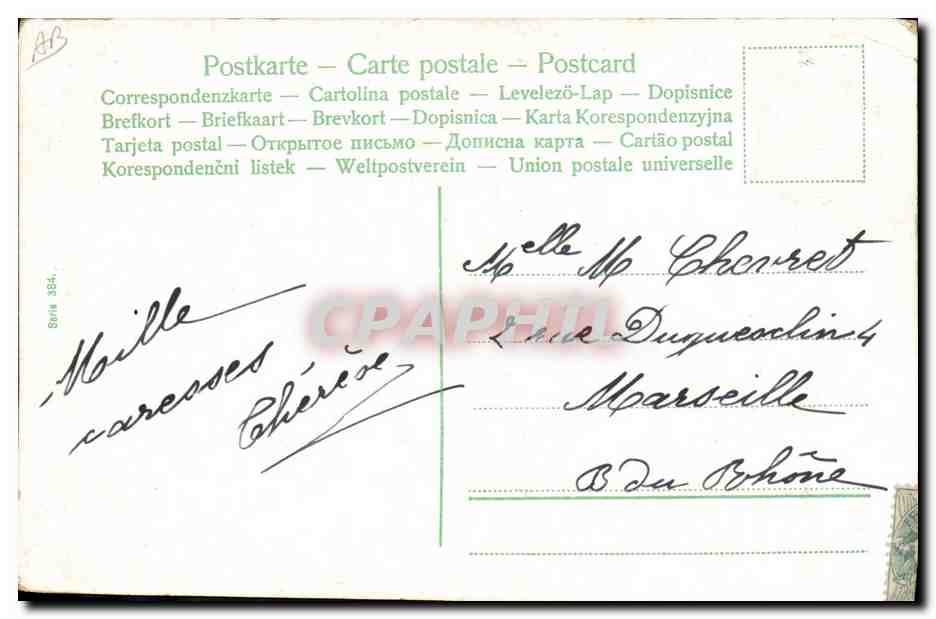 AB
Postkarte — Carte postale — Postcard
Correspondenzkarte — Cartolina postale — Levelező-Lap — Dopisnice
Brefkort — Briefkaart — Brevkort — Dopisnica — Karta Korespondenzyjna
Tarjeta postal — Открытое письмо — Дописна карта — Cartão postal
Korespondenčni listek — Weltpostverein — Union postale universelle
Serie 384.
Mille
caresses
Thérèse
Melle M Chevret
2 rue Duguesclin 4
Marseille
B du Rhône
CPAPHIL